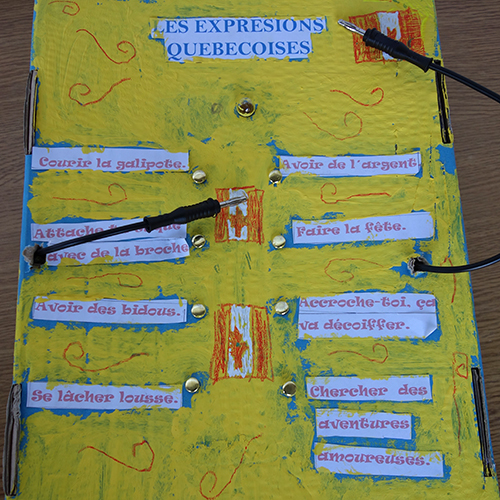 LES EXPRESIONS
QUEBECOISES
Courir la galipote.
Avoir de l'argent
Attache
avec de la broche
Faire la fête.
Avoir des bidous.
Accroche-toi, ça
va décoiffer.
Se lâcher lousse.
Chercher des
aventures
amoureuses.